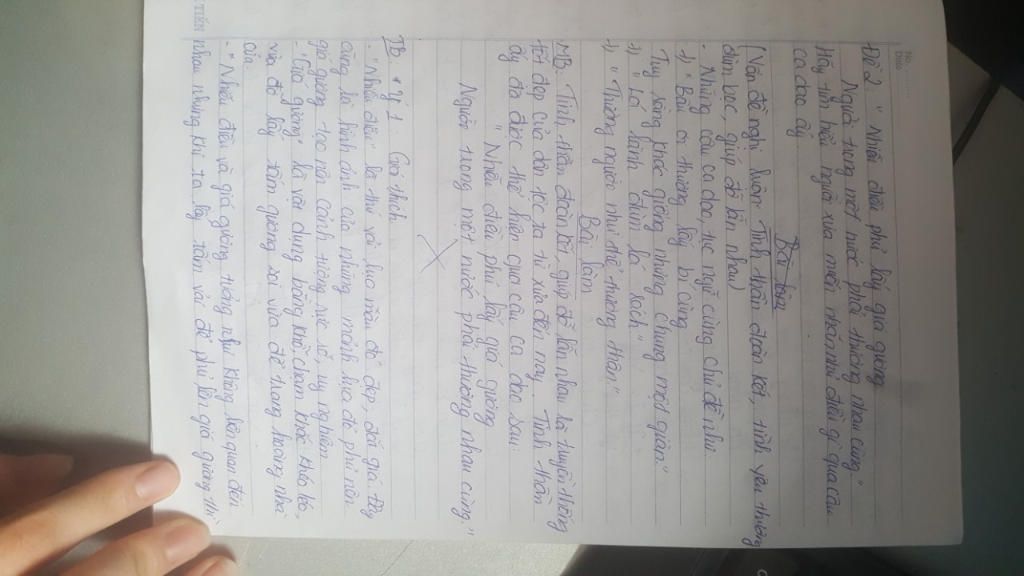 No.
Date
Đề 2. "Nhiễu điều phủ lấy giá gương
Người trong một nước phải thương nhau cùng"
Hãy tìm hiểu người xưa muốn nhắn nhủ điều gì qua câu
ca dao ấy
Bài làm
(Vấn đề nghị luận: Tinh thần đoàn kết, tình yêu thương
đùm bọc, giúp đỡ lẫn nhau)
- Những câu ca dao, tục ngữ cùng chủ đề như
+) "Bầu ơi thương lấy bí cùng
Tuy rằng khác giống nhưng chung một giàn"
+) "Lá lành đùm lá rách"
+) "Thương người như thể thương thân"
Bài làm
MB: Tinh thần đoàn kết, giúp đỡ lẫn nhau là truyền thống
tốt đẹp của dân tộc ta từ xưa đến nay. Tinh thần
ấy đã được thể hiện qua câu ca dao sau:
"Nhiễu điều phủ lấy giá gương
Người trong một nước phải thương nhau cùng."
TB: * ý 1: Giải thích
- "Nhiễu điều" là thứ vải lụa màu đỏ đẹp, đắt giá. Đây
cũng là hình ảnh của những mảnh lụa đỏ phủ nên
giá gương tạo nên cảnh tượng rực rỡ, uy nghiêm
- "Giá gương" là vật dụng bằng gỗ chạm khắc khéo léo,
vừa để lấy tấm gương soi vừa để trang hoàng nhà
cửa
- "Nhiễu điều và giá gương tưởng như không liên quan đến
nhau nhưng khi ta lấy tấm vải đỏ phủ lên giá gương thì
TIẾN